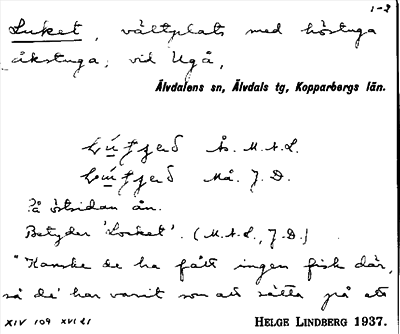 1-2
Luket, vältplats med höstuga
åkstuga, vid Ugå,
Älvdalens sn, Älvdals tg, Kopparbergs län.
Ås. M.A.L.
Må. J.D.
På östsidan ån.
Betyder 'Locket'. (M.A.L., J.D.)
"Kanske de ha fått ingen fisk där,
så de' har varit som att sätta på ett
XIV 109 XVI 21 HELGE LINDBERG 1937.